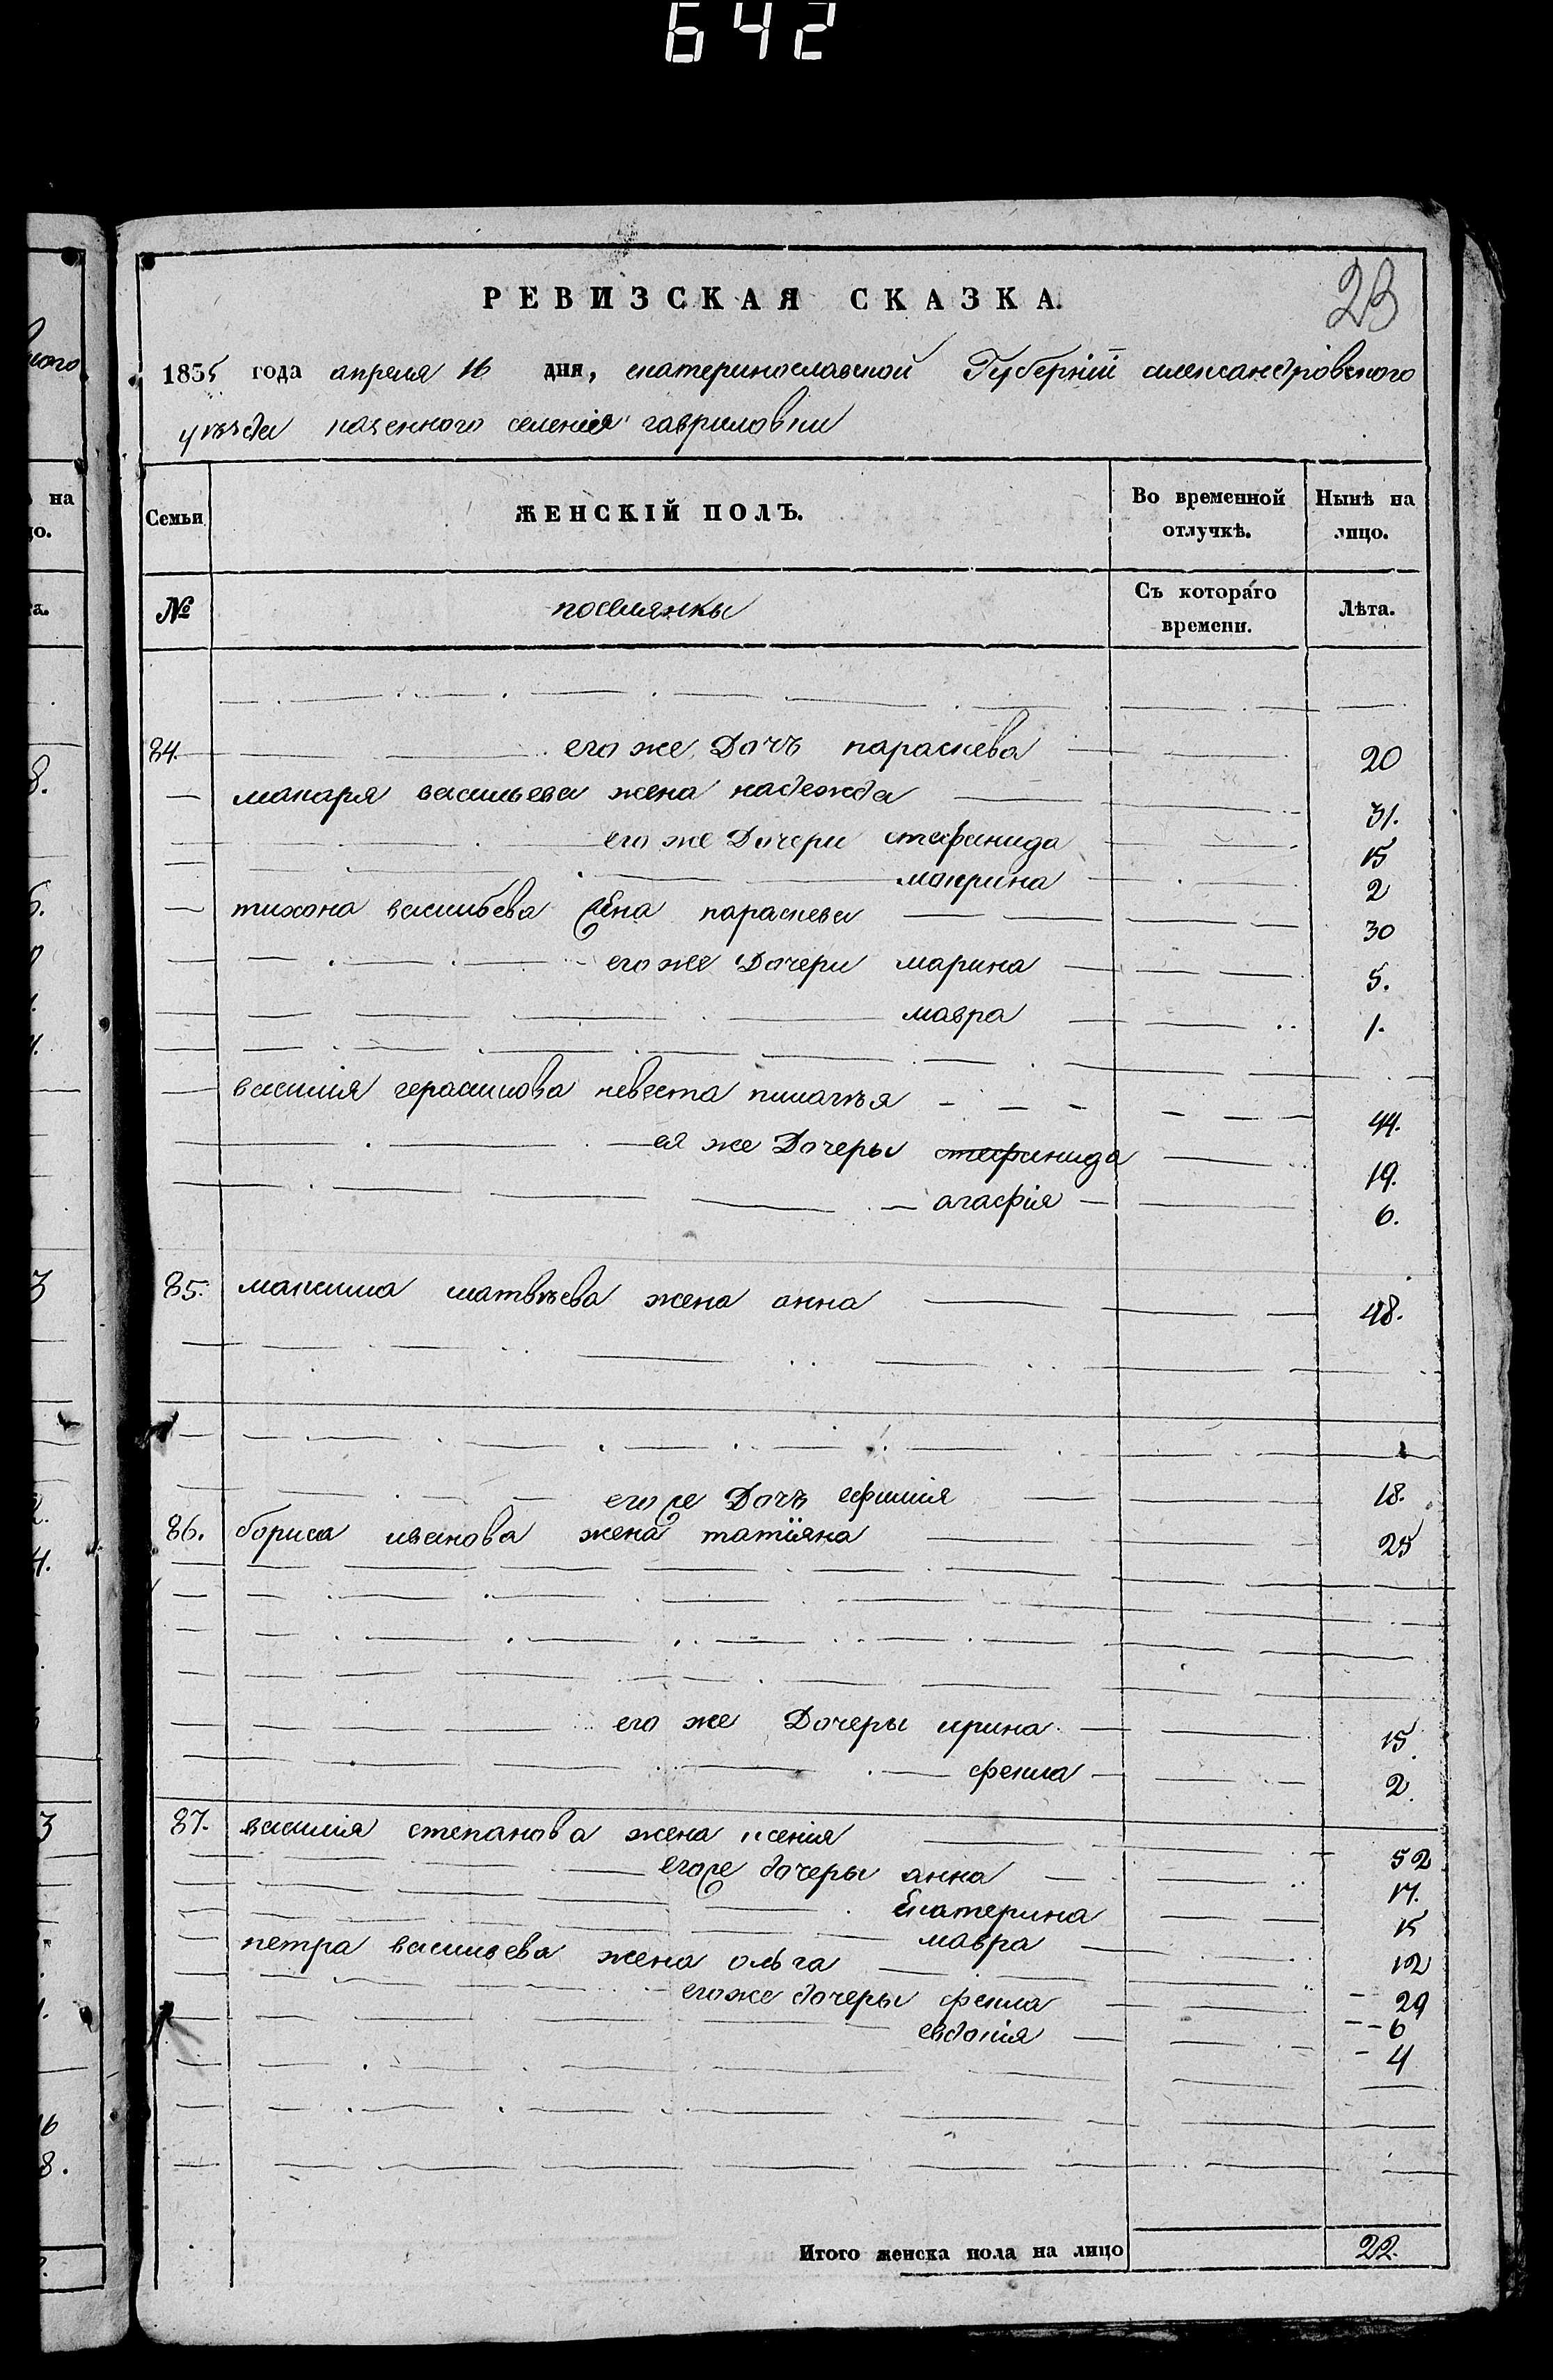 642
23
РЕВИЗСКАЯ СКАЗКА.
1835 года апреля 16 дня, екатеринославской Губерніи александровского
уѣзда казенного селения гавриловки
Семьи
ЖЕНСКІЙ ПОЛЪ.
Во временной отлучкѣ.
Нынѣ на лицо.
№
поселянки
Съ котораго времени.
Лѣта.
84. его же Дочъ параскева 20
макаря васильева жена надежда 31.
его же Дочери стефанида 15
макрина 2
тихона васильева жена параскева 30
его же Дочери марина 5.
мавра 1.
василія герасимова невеста пилагѣя 44.
ея же Дочеры стефанида 19.
агафія 6.
85. максима матвѣева жена анна 48.
его же Дочъ ефимія 18.
86. бориса иванова жена татіяна 25
его же Дочеры ирина 15
фекла 2.
87. василія степанова жена ксенія 52
его же дочеры анна 17.
Екатерина 15
мавра 12
петра васильева жена ольга 29
его же дочеры фекла 6
евдокія 4
Итого женска пола на лицо 22.